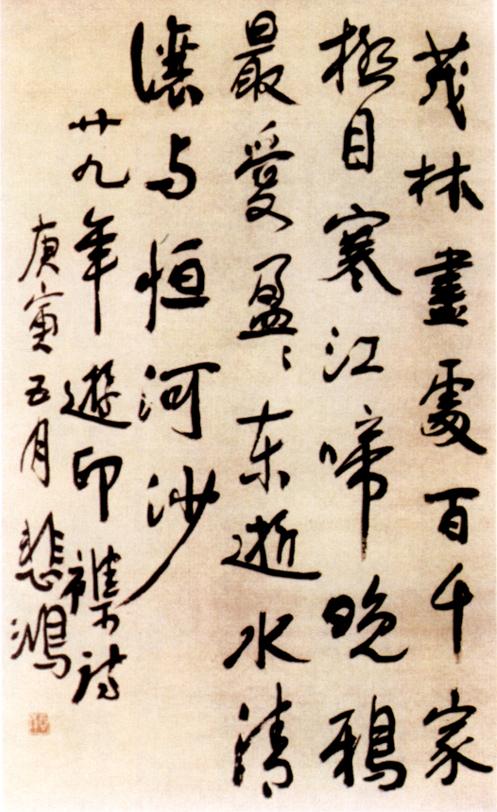 茂林盡處百千家
極目寒江啼晚鴉
最愛盈〻东逝水清
讓与恒河沙
廿九年遊印襍诗
庚寅五月悲鴻